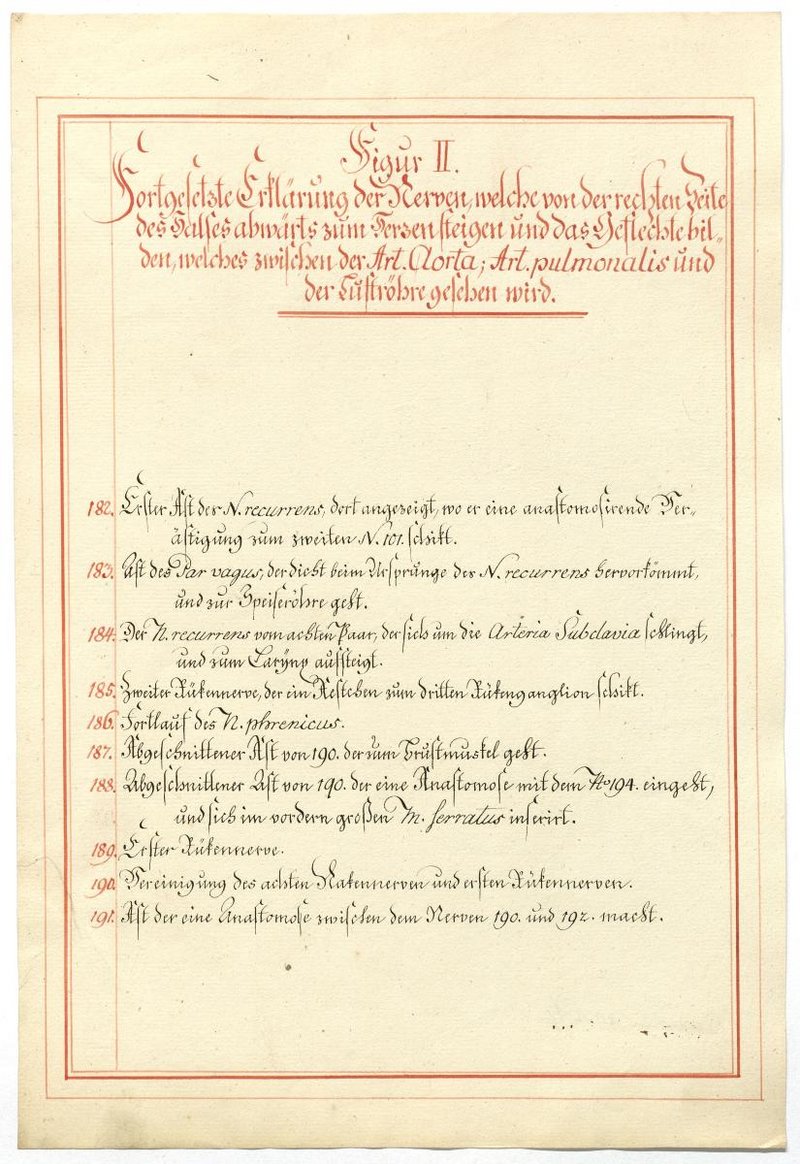 Figur II.
Fortgesetzte Erklärung der Nerven, welche von der rechten Seite
des Halses abwärts zum Herzen steigen und das Geflechte bil-
den, welches zwischen der Art. Aorta; Art. pulmonalis und
der Luftröhre gesehen wird.
182. Erster Ast des N. recurrens, dort angezeigt, wo er eine anastomosirende Ver-
ästigung zum zweiten N. 101. schikt.
183. Ast des Par vagus, der dicht beim Ursprunge des N. recurrens hervorkömmt,
und zur Speiseröhre geht.
184. Der N. recurrens vom achten Paar, der sich um die Arteria Subclavia schlingt,
und zum Larynx aufsteigt.
185. Zweiter Rükennerve, der ein Aestchen zum dritten Rükenganglion schikt.
186. Fortlauf des N. phrenicus.
187. Abgeschnittener Ast von 190. der zum Brustmuskel geht.
188. Abgeschnittener Ast von 190. der eine Anastomose mit dem No 194. eingeht,
und sich im vordern großen M. serratus inserirt.
189. Erster Rükennerve.
190. Vereinigung des achten Nakennerven und ersten Rükennerven.
191. Ast der eine Anastomose zwischen dem Nerven 190. und 192. macht.